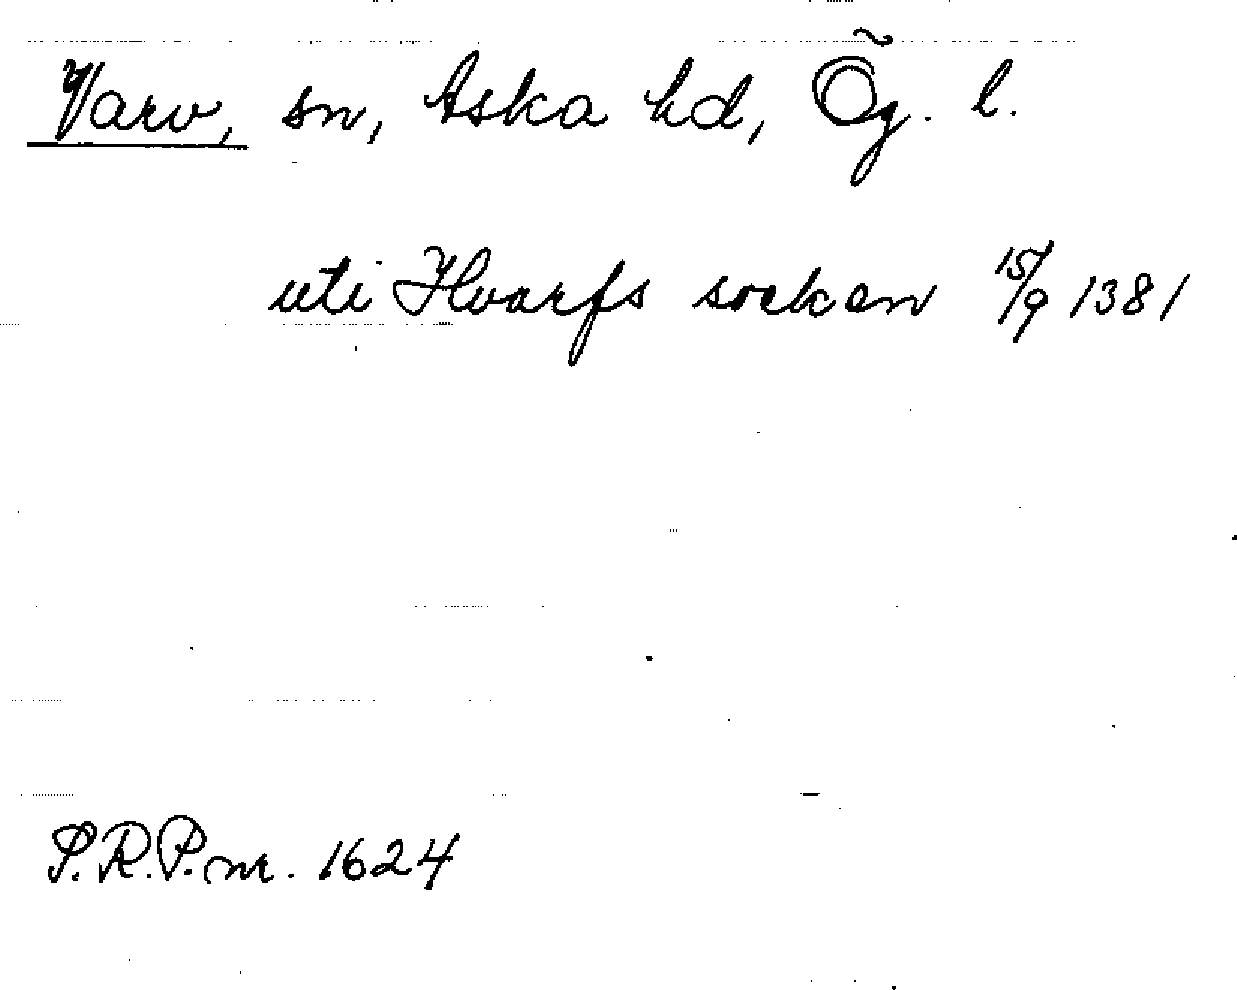 Varv, sn, Aska hd, Ög. l.
uti Hvarfs socken 15/9 1381
S.R.P. nr. 1624